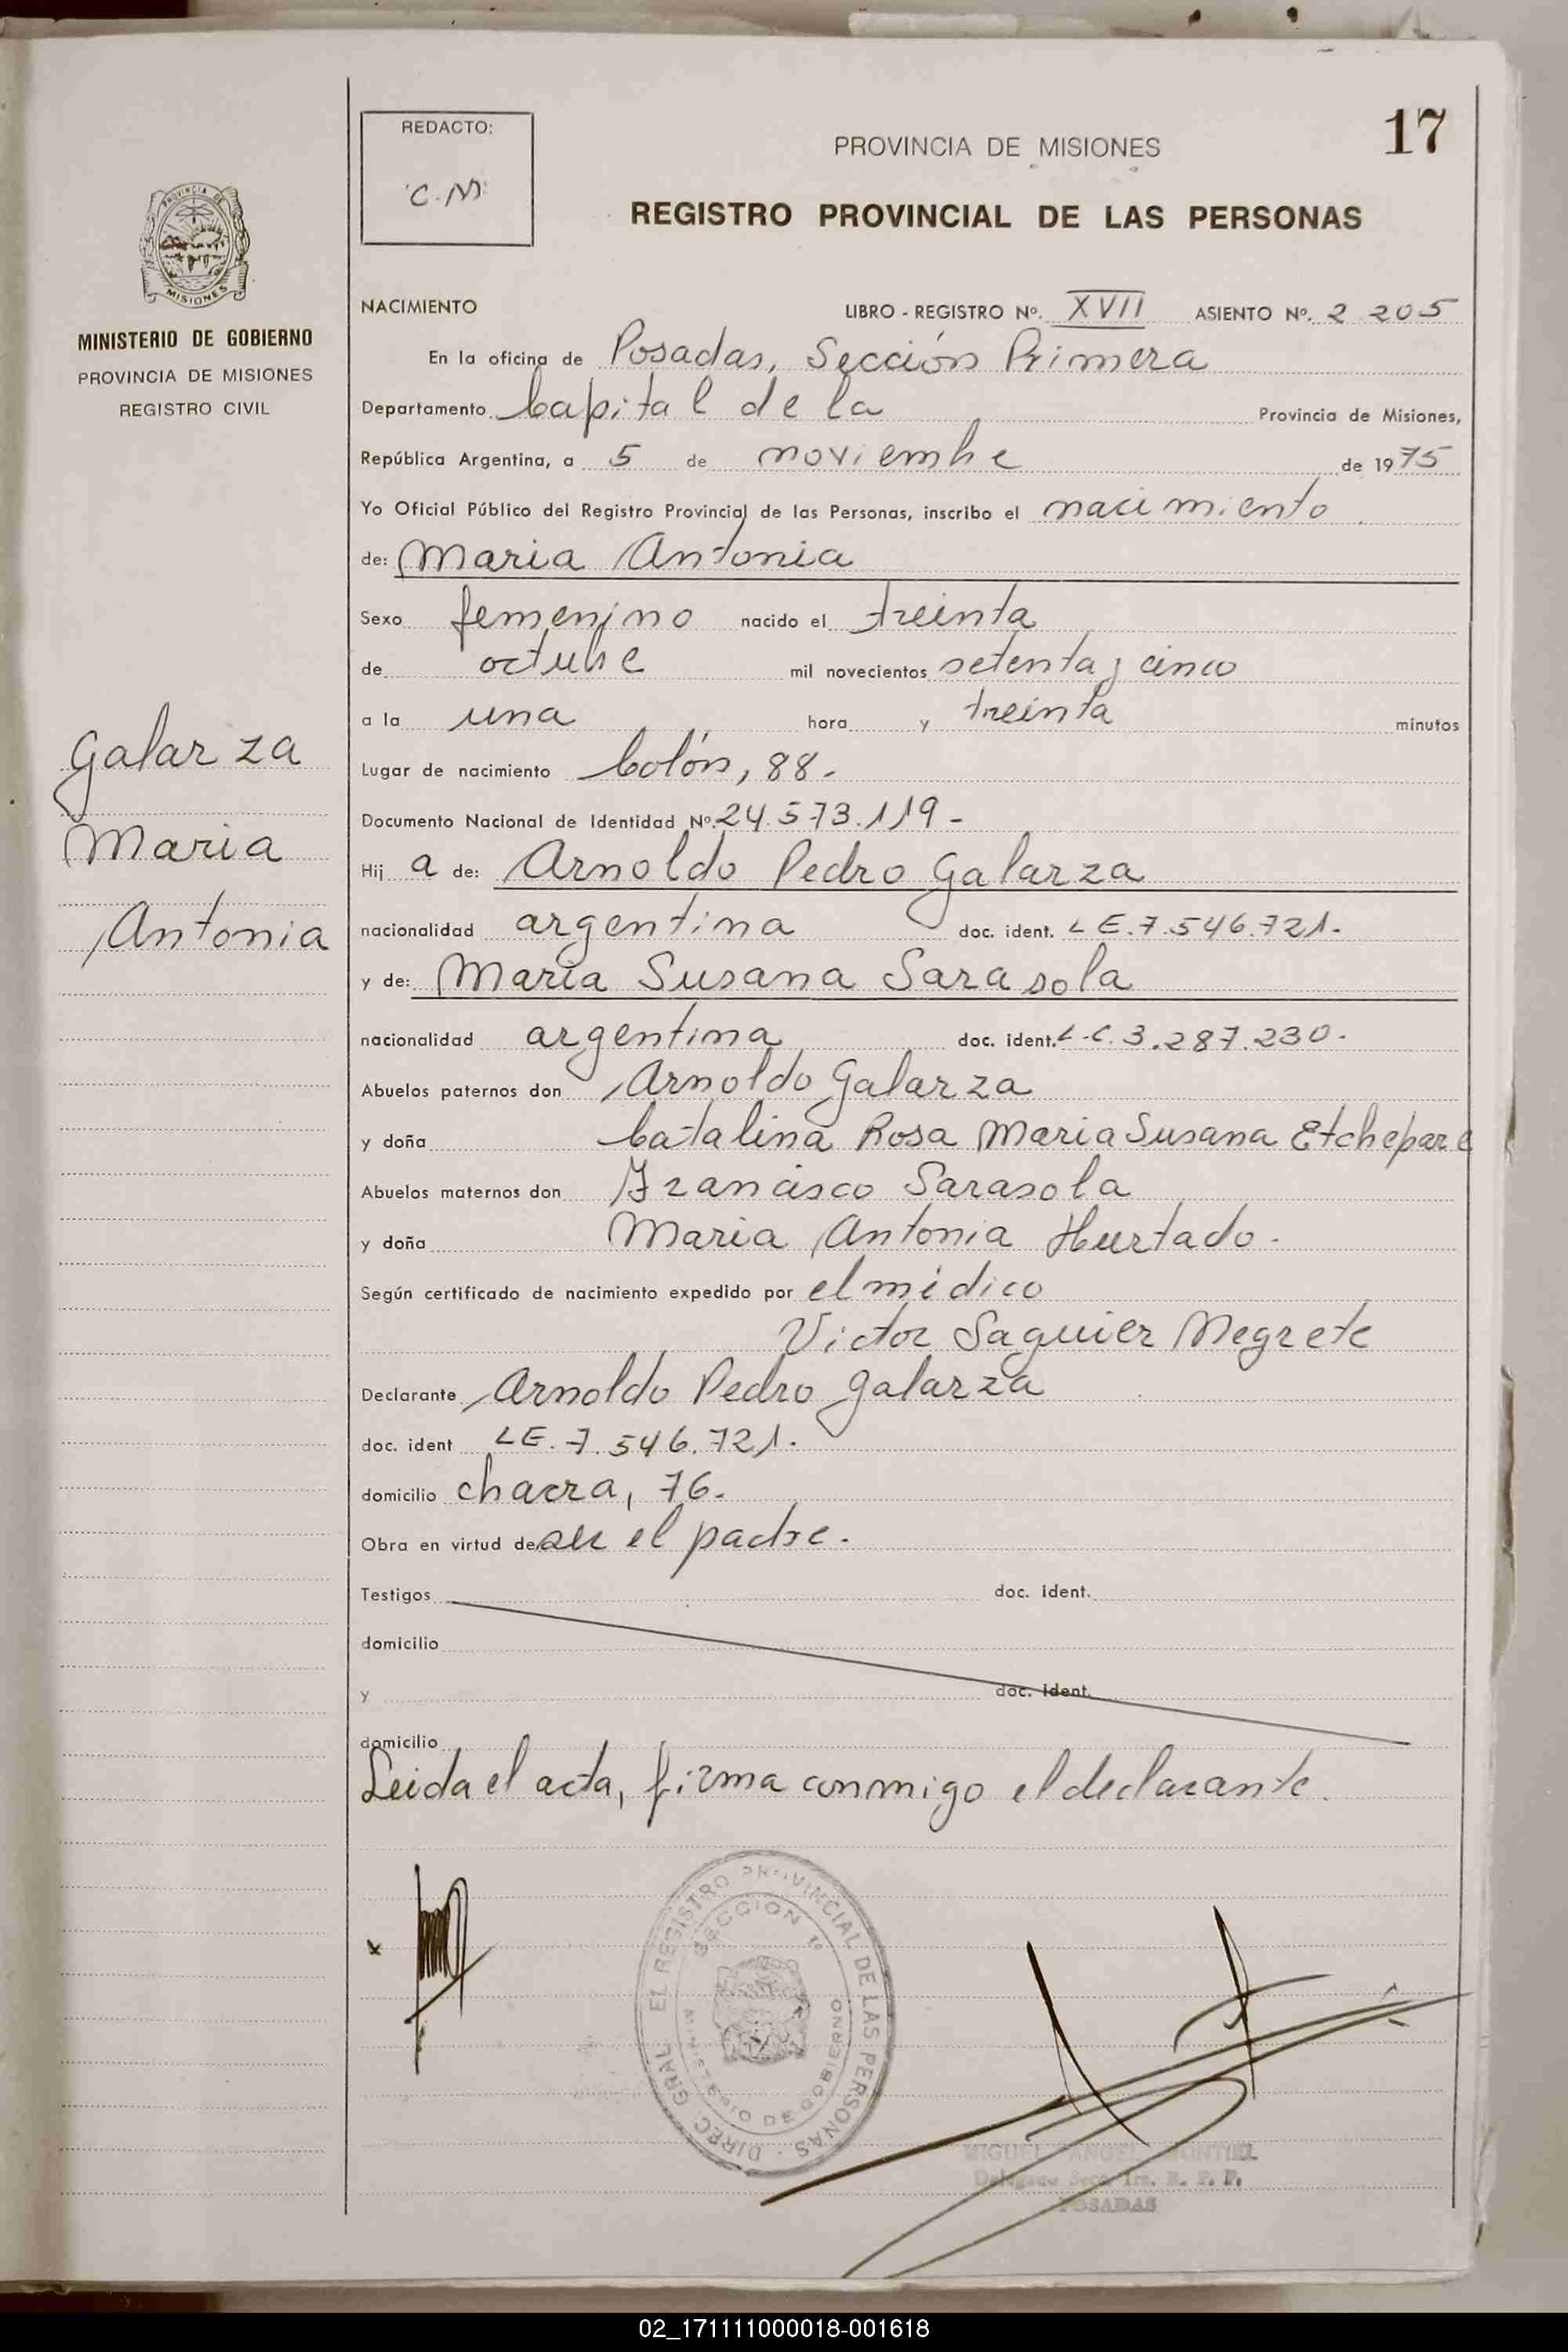 17
REDACTO:
C.M.
PROVINCIA DE MISIONES
REGISTRO PROVINCIAL DE LAS PERSONAS
PROVINCIA DE
MISIONES
MINISTERIO DE GOBIERNO
PROVINCIA DE MISIONES
REGISTRO CIVIL
Galarza
Maria
Antonia
NACIMIENTO LIBRO - REGISTRO Nº. XVII ASIENTO Nº. 2 205
En la oficina de Posadas, Sección Primera
Departamento Capital de la Provincia de Misiones,
República Argentina, a 5 de noviembre de 1975
Yo Oficial Público del Registro Provincial de las Personas, inscribo el nacimiento
de: Maria Antonia
Sexo femenino nacido el treinta
de octubre mil novecientos setenta y cinco
a la una hora y treinta minutos
Lugar de nacimiento Colón, 88.
Documento Nacional de Identidad Nº. 24.573.119 -
Hij a de: Arnoldo Pedro Galarza
nacionalidad argentina doc. ident. LE. 7.546.721.
y de: Maria Susana Sarasola
nacionalidad argentina doc. ident. L.C. 3.287.230.
Abuelos paternos don Arnoldo Galarza
y doña Catalina Rosa Maria Susana Etchepare
Abuelos maternos don Francisco Sarasola
y doña Maria Antonia Hurtado.
Según certificado de nacimiento expedido por el médico
Victor Saguier Negrete
Declarante Arnoldo Pedro Galarza
doc. ident LE. 7.546.721.
domicilio chacra, 76.
Obra en virtud de ser el padre.
Testigos doc. ident.
domicilio
y doc. ident.
domicilio
Leida el acta, firma conmigo el declarante.
DIREC. GRAL EL REGISTRO PROVINCIAL DE LAS PERSONAS
SECCION 1ª
MINISTERIO DE GOBIERNO
MIGUEL ANGEL MONTIEL
Delegado Secc. 1ra. R. P. P.
POSADAS
02_171111000018-001618